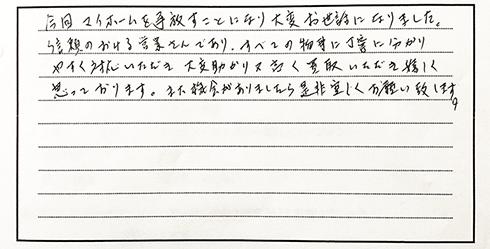 今回マイホームを手放すことになり大変お世話になりました。
信頼のおける営業さんであり、すべての物事に丁寧に分かり
やすく対応いただき大変助かり又高く買取いただき嬉しく
思っております。また機会がありましたら是非宜しくお願い致します